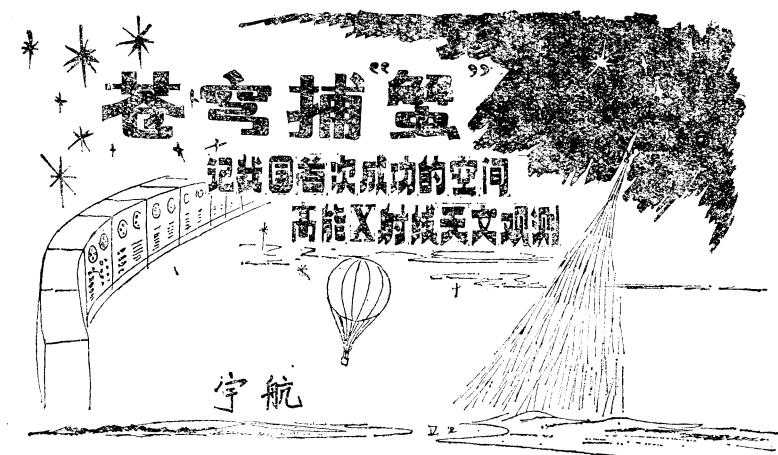 苍穹捕“蟹”
记我国首次成功的空间
高能X射线天文观测
宇航